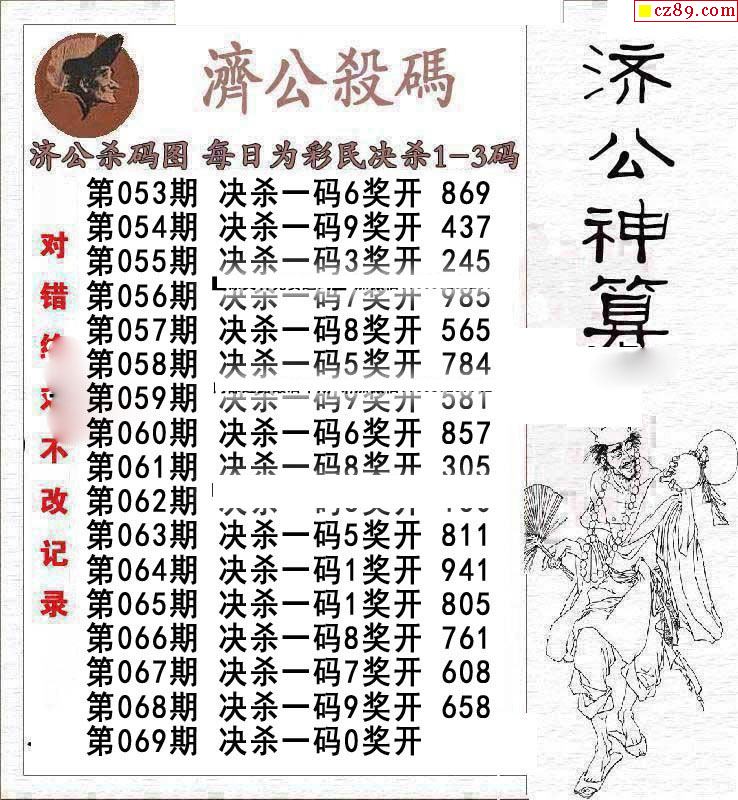 cz89.com
濟公殺碼
济公杀码图 每日为彩民决杀1-3码
第053期 决杀一码6奖开 869
第054期 决杀一码9奖开 437
第055期 决杀一码3奖开 245
第056期 决杀一码7奖开 985
第057期 决杀一码8奖开 565
第058期 决杀一码5奖开 784
第059期 决杀一码9奖开 581
第060期 决杀一码6奖开 857
第061期 决杀一码8奖开 305
第062期
第063期 决杀一码5奖开 811
第064期 决杀一码1奖开 941
第065期 决杀一码1奖开 805
第066期 决杀一码8奖开 761
第067期 决杀一码7奖开 608
第068期 决杀一码9奖开 658
第069期 决杀一码0奖开
对错
不改记录
济公神算